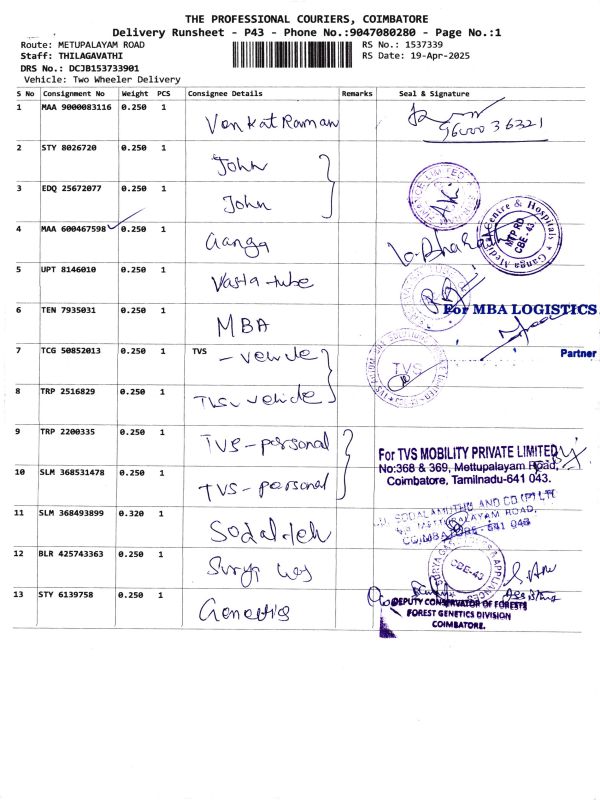 THE PROFESSIONAL COURIERS, COIMBATORE
Delivery Runsheet - P43 - Phone No.:9047080280 - Page No.:1
Route: METUPALAYAM ROAD RS No.: 1537339
Staff: THILAGAVATHI RS Date: 19-Apr-2025
DRS No.: DCJB153733901
Vehicle: Two Wheeler Delivery
S No Consignment No Weight PCS Consignee Details Remarks Seal & Signature
1 MAA 9000083116 0.250 1 Venkat Raman
9600036321
2 STY 8026720 0.250 1 John
3 EDQ 25672077 0.250 1 John
4 MAA 600467598 0.250 1 Ganga
Ganga Medical Centre & Hospitals
MTP RD
CBE - 43
5 UPT 8146010 0.250 1 Vasta tube
6 TEN 7935031 0.250 1 MBA
For MBA LOGISTICS
Partner
7 TCG 50852013 0.250 1 TVS - vehicle
TVS
8 TRP 2516829 0.250 1 TVS. vehicle
9 TRP 2200335 0.250 1 TVS-personal
For TVS MOBILITY PRIVATE LIMITED
No:368 & 369, Mettupalayam Road,
Coimbatore, Tamilnadu-641 043.
10 SLM 368531478 0.250 1 TVS - personal
11 SLM 368493899 0.320 1
SODALAMUTHU AND CO (P) LTD
METTUPALAYAM ROAD,
COIMBATORE - 641 043
12 BLR 425743363 0.250 1 Surya
CBE-43
13 STY 6139758 0.250 1 Genetics
DEPUTY CONSERVATOR OF FORESTS
FOREST GENETICS DIVISION
COIMBATORE.